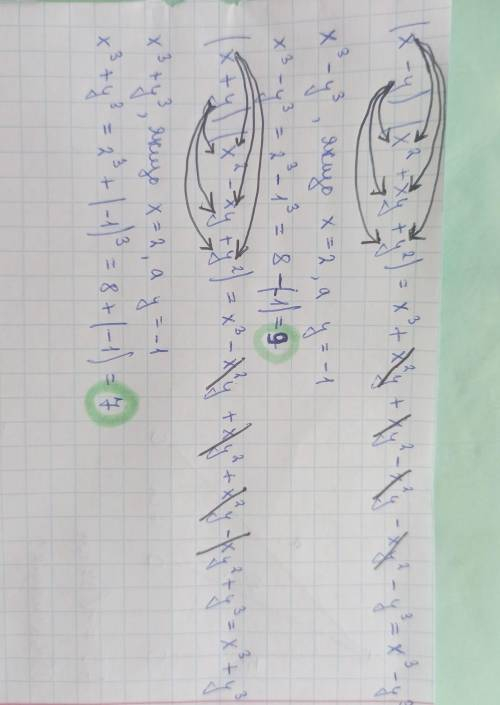 (x - y)(x² + xy + y²) = x³ + x²y + xy² - x²y - xy² - y³ = x³ - y³
x³ - y³, якщо x = 2, а y = -1
x³ - y³ = 2³ - 1³ = 8 - (-1) = 9
(x + y)(x² - xy + y²) = x³ - x²y + xy² + x²y - xy² + y³ = x³ + y³
x³ + y³, якщо x = 2, а y = -1
x³ + y³ = 2³ + (-1)³ = 8 + (-1) = 7